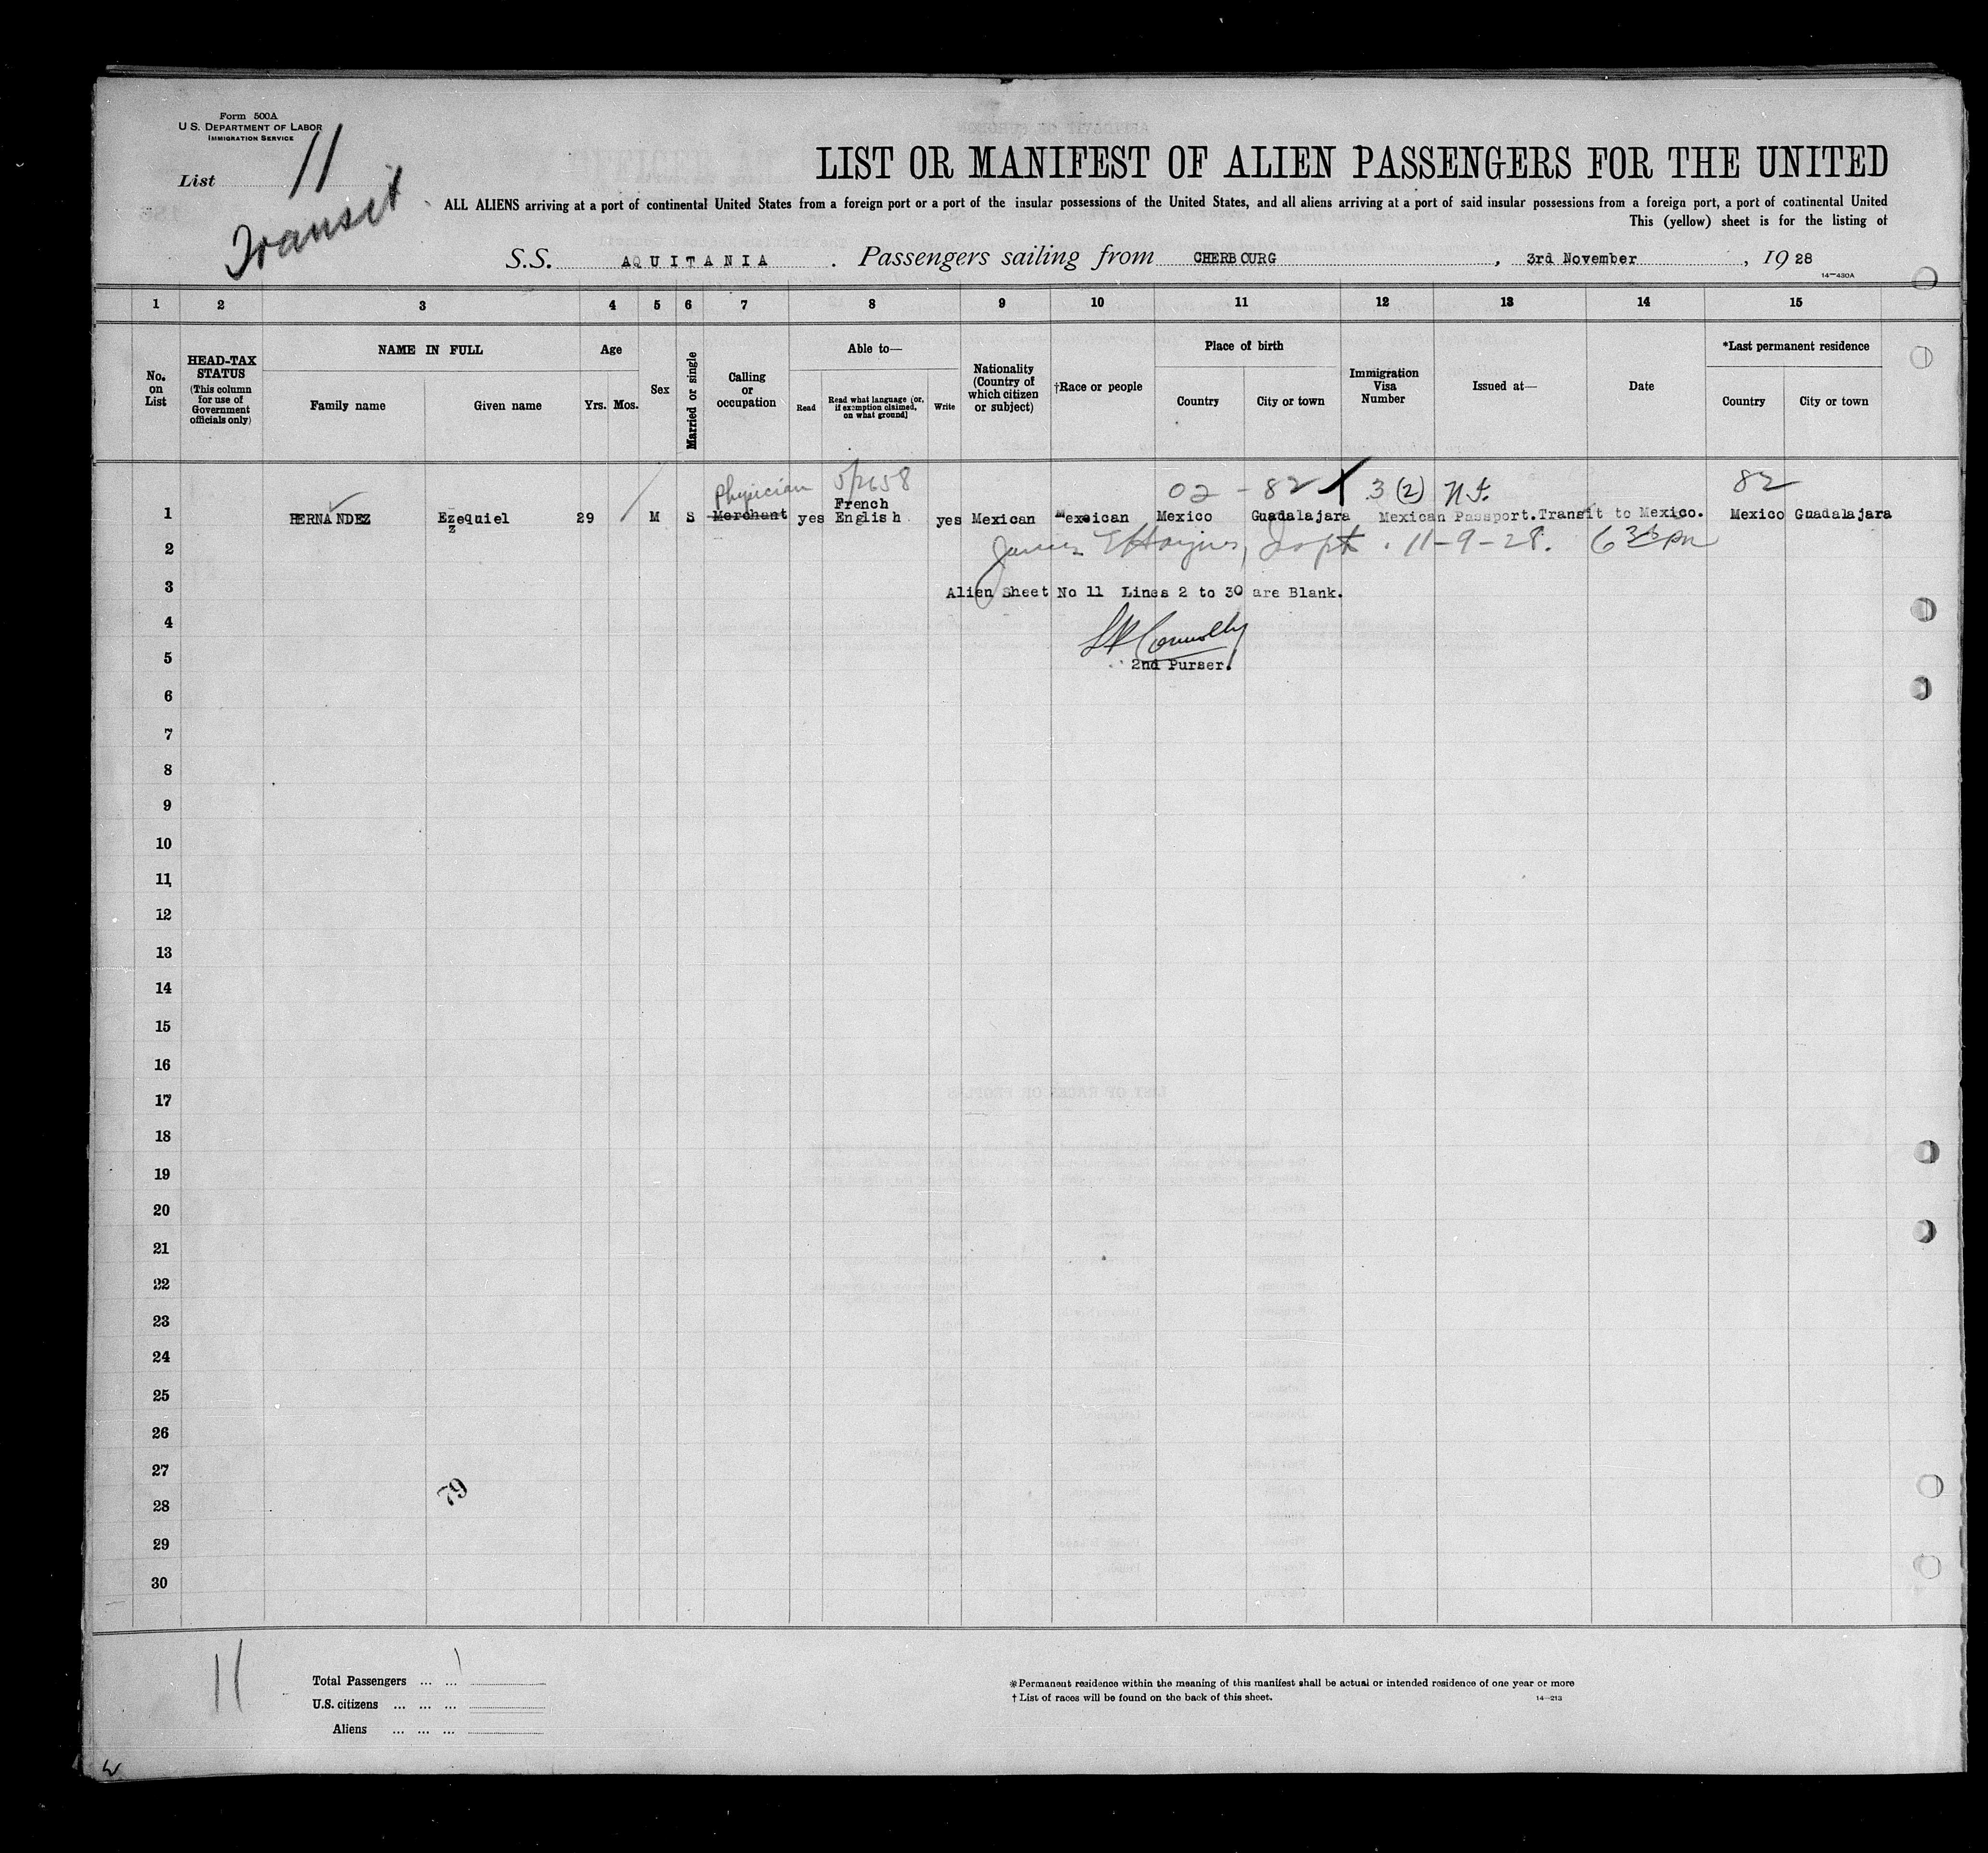 Form 500A
U.S. DEPARTMENT OF LABOR
IMMIGRATION SERVICE
List 11
Transit
LIST OR MANIFEST OF ALIEN PASSENGERS FOR THE UNITED
ALL ALIENS arriving at a port of continental United States from a foreign port or a port of the insular possessions of the United States, and all aliens arriving at a port of said insular possessions from a foreign port, a port of continental United
This (yellow) sheet is for the listing of
S.S. AQUITANIA. Passengers sailing from CHERBOURG, 3rd November, 1928
14—430A
1 2 3 4 5 6 7 8 9 10 11 12 13 14 15
No. on List
HEAD-TAX STATUS (This column for use of Government officials only)
NAME IN FULL
Family name Given name
Age
Yrs. Mos.
Sex
Married or single
Calling or occupation
Able to—
Read Read what language [or, if exemption claimed, on what ground] Write
Nationality (Country of which citizen or subject)
†Race or people
Place of birth
Country City or town
Immigration Visa Number
Issued at—
Date
*Last permanent residence
Country City or town
Physician 5/2658 02 - 82 X 3(2) 82
French
1 HERNANDEZ Ezequiel 29 M S Merchant yes English yes Mexican Mexican Mexico Guadalajara Mexican Passport. Transit to Mexico. Mexico Guadalajara
z
2 James 11-9-28.
3 Alien Sheet No 11 Lines 2 to 30 are Blank.
4 Connolly
5 2nd Purser.
6
7
8
9
10
11
12
13
14
15
16
17
18
19
20
21
22
23
24
25
26
27
79
28
29
30
11
Total Passengers ... ... 1
U.S. citizens ... ... ...
Aliens ... ... ...
*Permanent residence within the meaning of this manifest shall be actual or intended residence of one year or more
†List of races will be found on the back of this sheet.
14—213